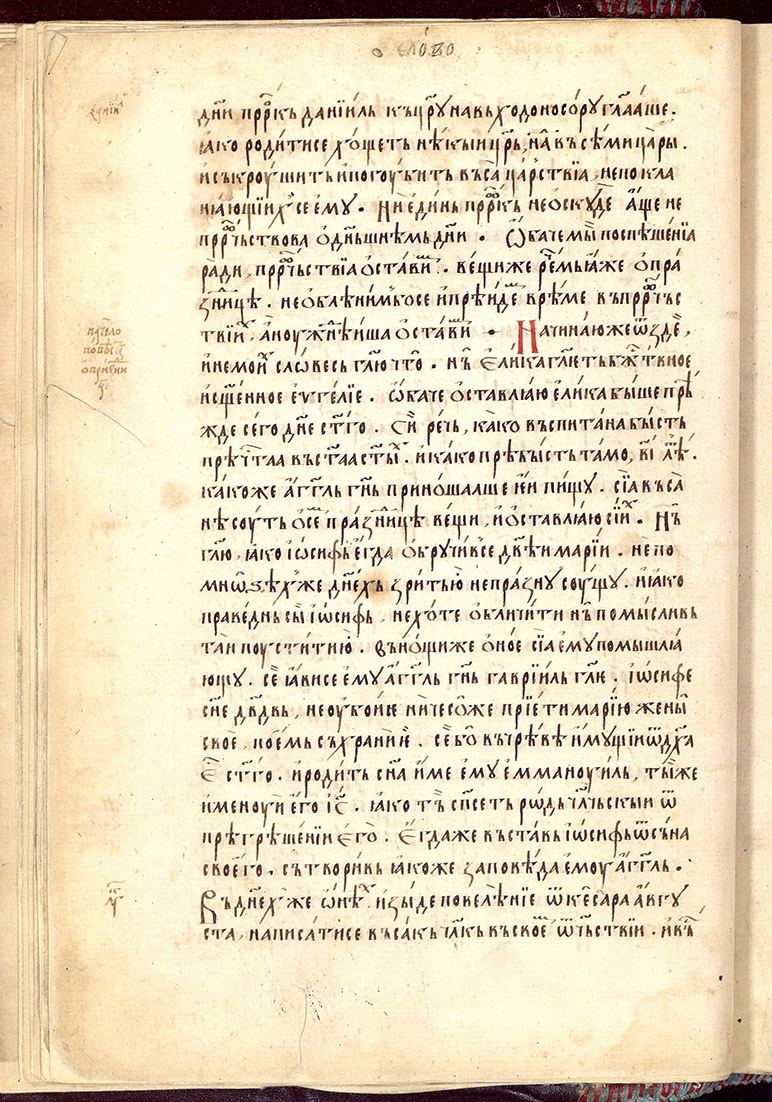 слово
дн҃и прⷪ҇ркъ данїиль къ цр҃у навьходоносору гл҃ааше.
ꙗко родитисе хощеть нѣкыи цр҃ь, на въсѣми цари.
и съкроушить и погоубить въса цар҇ствїа, не покла
нꙗющїих се ѐму. Ни единь прⷪ҇ркь не оскудѐ аще не
прⷪ҇рчьствова о дн҃ьшнѣмь дн҃и. Ѡбаче мы поспѣшенїа
ради, прⷪ҇рчьствїа оставим. вещи же рцѐмь ꙗже о пра
зницѣ. не облѣним же се и преидем врѣме въ прⷪ҇рчьс
твїих, а ноужнѣиша оставим. Начинаю же ѿ здѐ,
и не моих словесь гл҃ю что. нь Елика гл҃ѥть бж҃твное
и сщ҃енное еѵгелїе. ѡбаче оставлꙗю елика быше прѣ
жде сего дн҃е ст҃го. Си речь, како въспитана бысть
прѣч҇таа въ ст҃аа ст҃ых. и како прѣбысть тамо, в҃і лѣт.
како же агг҃ль гн҃ь приношааше ѥи пищу. сїа въса
не соуть ѻ сем празницѣ вещи, и оставлꙗю сїих. Нь
гл҃ю, ꙗко іѡсифь егда обручивсе дв҃ѣи марїи. не по
мнѡзѣх же днех ь зрить ю непразну соущу. и ꙗко
праведнь сы іѡсифь, не хоте обличити нь помысливь
таи поустити ю. въ нощи же оное сїа ѐму помышлꙗ
ющу. сѐ ꙗвисе ѐму агг҃ль гн҃ь гаврїиль гл҃ѥ. Іѡсифе
сн҃е дв҃двь, не оубоисе ничесоже прїети марїю жены
своѐ, поѥмь съхрани ѥ. сѐ бо въ чрѣвѣ имущїи ѿ дх҃а
Е ст҃го. и родить сн҃а име ѐму ѐмманоуиль, ты же
именоуи ѐго іс҃. ꙗко тъ спс҃еть рѡдь чл҃чьскыи ѿ
прѣгрѣшенїи его. Егда же въставь іѡсифь ѿ съна
своего. сътворивь ꙗкоже заповѣда ѐмоу агг҃ль.
Въ днех же ѡнѣх изыде повелѣнїе ѿ кесара авгу
ста, написатисе въсакь чл҃кь въ своем ѿчьствїи. и въ
начело
повѣсти